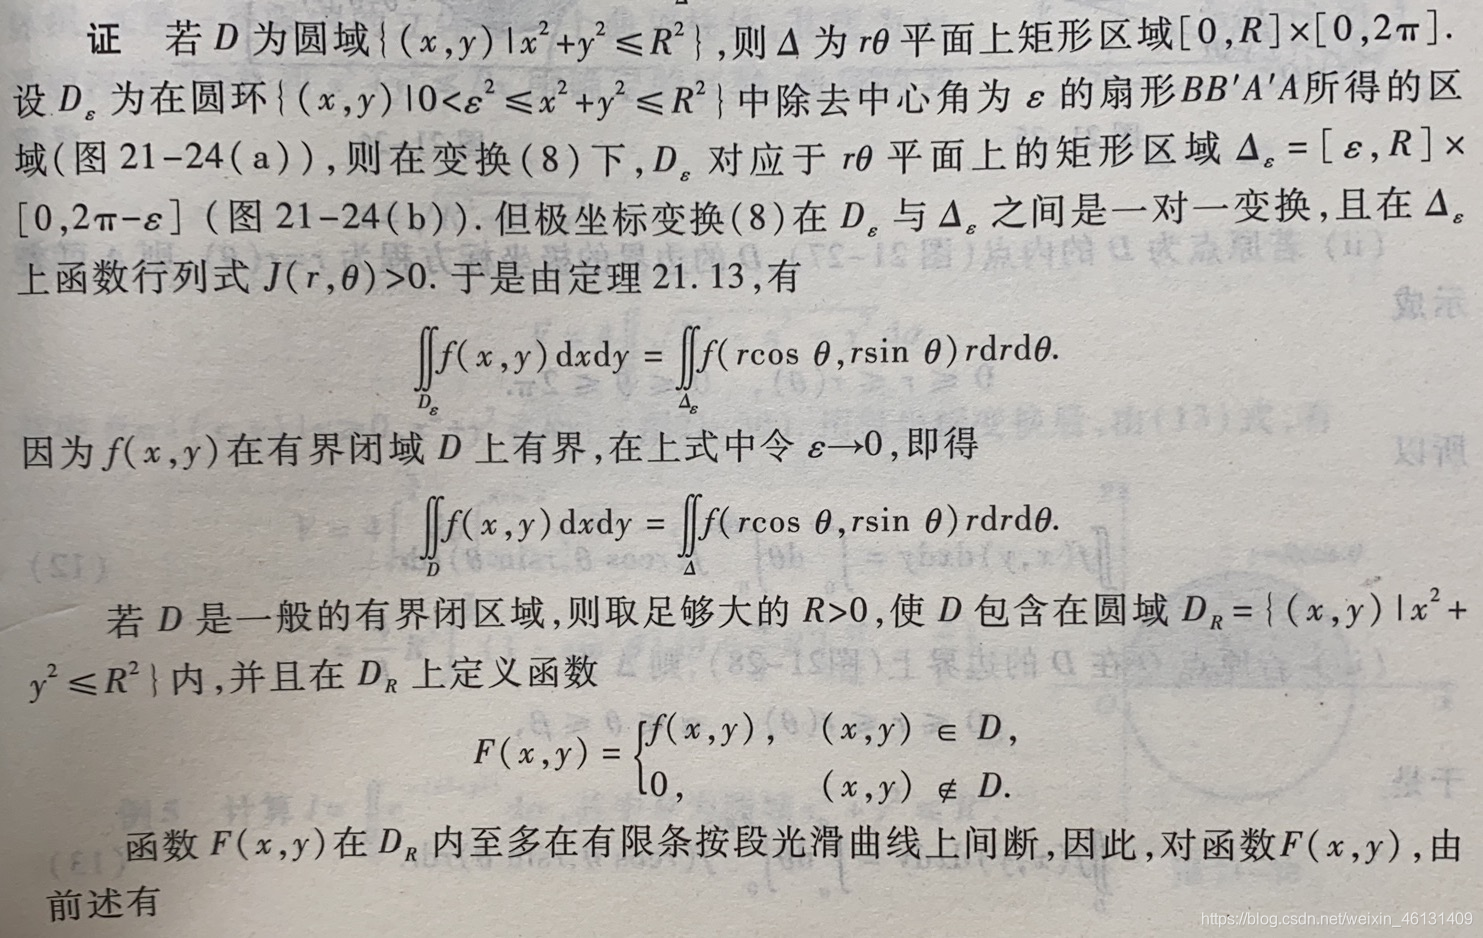 证 若 D 为圆域{(x,y)|x²+y²≤R²},则 Δ 为 rθ 平面上矩形区域[0,R]×[0,2π].
设 D_ε 为在圆环{(x,y)|0<ε²≤x²+y²≤R²}中除去中心角为 ε 的扇形BB′A′A所得的区
域(图 21-24(a)),则在变换(8)下,D_ε 对应于 rθ 平面上的矩形区域 Δ_ε=[ε,R]×
[0,2π-ε](图 21-24(b)).但极坐标变换(8)在 D_ε 与 Δ_ε 之间是一对一变换,且在 Δ_ε
上函数行列式 J(r,θ)>0. 于是由定理 21.13,有
∬_{D_ε} f(x,y)dxdy = ∬_{Δ_ε} f(rcos θ,rsin θ)rdrdθ.
因为 f(x,y)在有界闭域 D 上有界,在上式中令 ε→0,即得
∬_D f(x,y)dxdy = ∬_Δ f(rcos θ,rsin θ)rdrdθ.
若 D 是一般的有界闭区域,则取足够大的 R>0,使 D 包含在圆域 D_R={(x,y)|x²+
y²≤R²}内,并且在 D_R 上定义函数
F(x,y)={f(x,y), (x,y)∈D,
0, (x,y)∉D.
函数 F(x,y)在 D_R 内至多在有限条按段光滑曲线上间断,因此,对函数F(x,y),由
前述有
https://blog.csdn.net/weixin_46131409